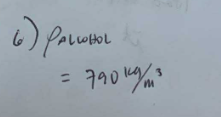 6) ρALCOHOL
= 790 kg/m³